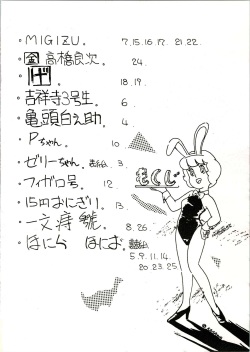 ・MIGIZU. 7.15.16.17. 21.22.
・金 高橋良次. 24.
・げ. 18.19.
・吉祥寺3号生. 6.
・亀頭白之助. 4.
・Pちゃん. 10.
・ゼリーちゃん. 3.
・フィガロ号. 12.
・15円おにぎり. 13.
・一文 8.26.
・ほにゃ
5.9.11.14.
20.23.25.
もくじ